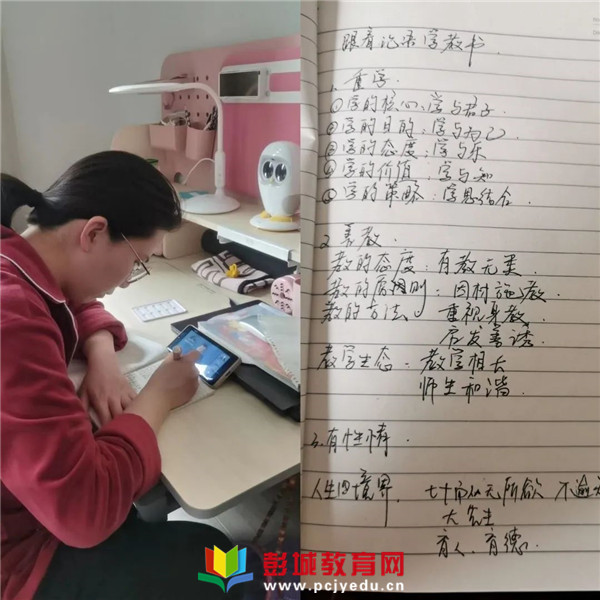 跟着论语学教书
1. 重学.
①学的核心:学与君子
②学的目的:学与为己
③学的态度:学与乐
④学的价值:学与知
⑤学的策略:学思结合.
2. 善教.
教的态度:有教无类.
教的原则:因材施教
教的方法 重视身教
启发善诱.
教学生态:教学相长
师生和谐.
3. 有性情
人生四境界. 七十而从 所欲 不逾
大先生
育人 育德.
彭城教育网
www.pcjyedu.cn